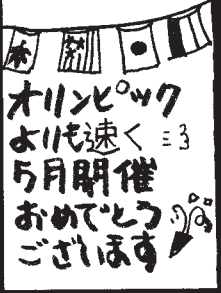 オリンピック
よりも速く
5月開催
おめでとう
ございます